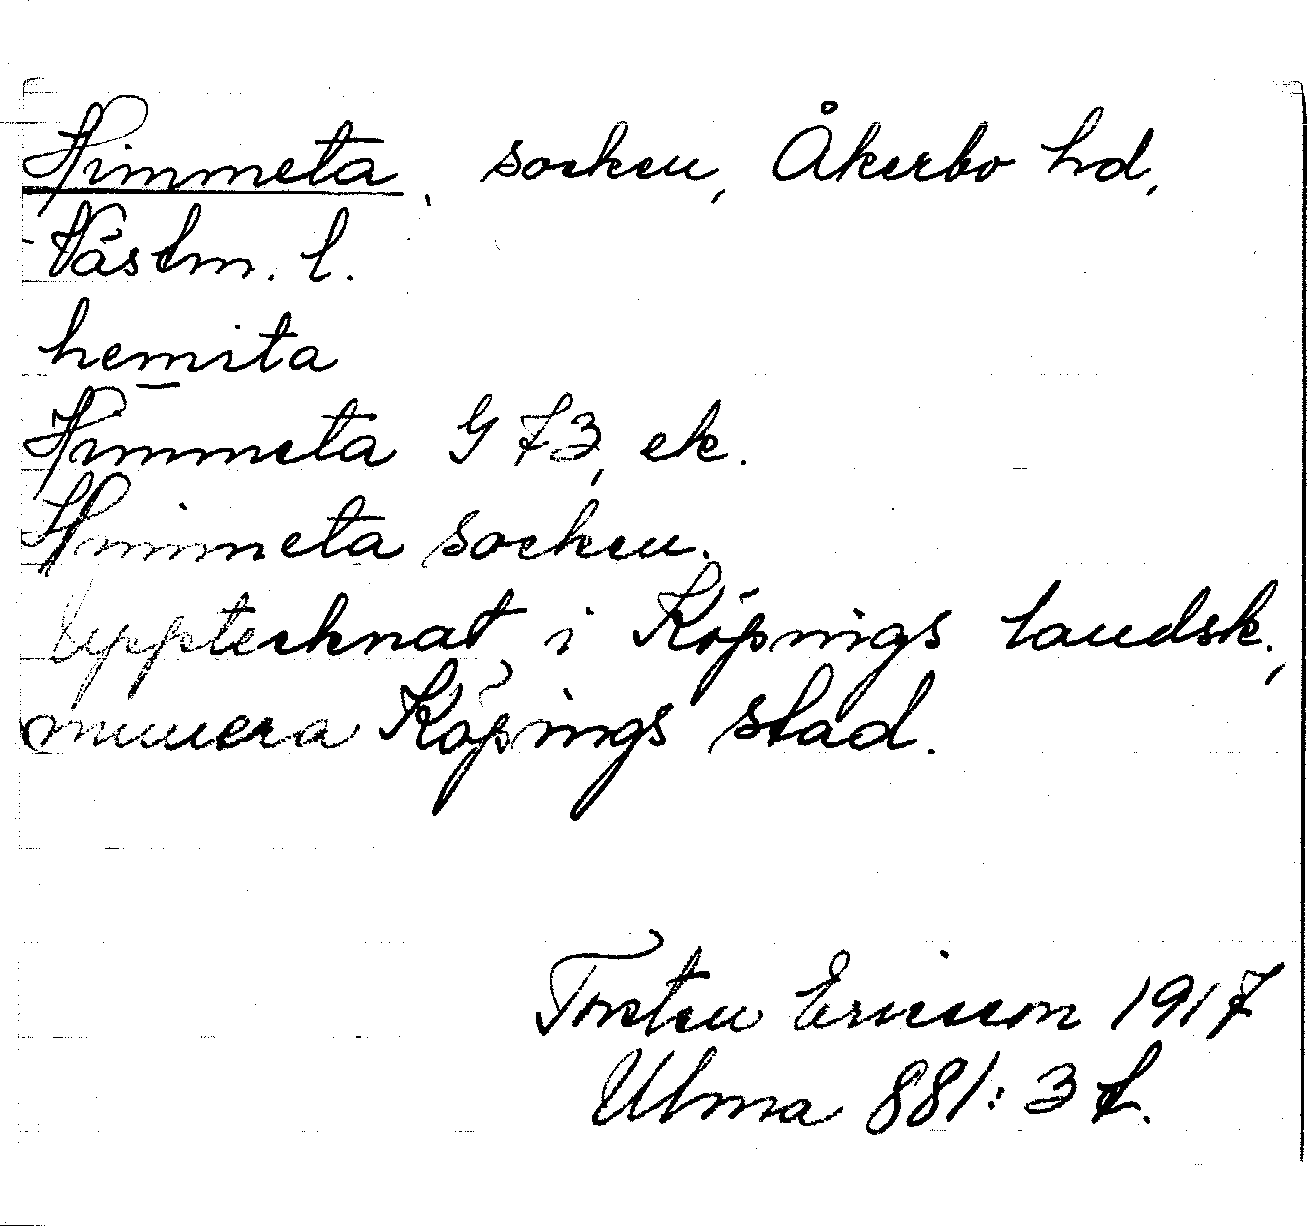 Himmeta, socken, Åkerbo hd,
Västm. l.
hemita
Himmeta G 73, ek.
Himmeta socken.
Upptecknat i Köpings landsk.,
numera Köpings stad.
Torsten Ericsson 1917
Ulma 881:3 f.